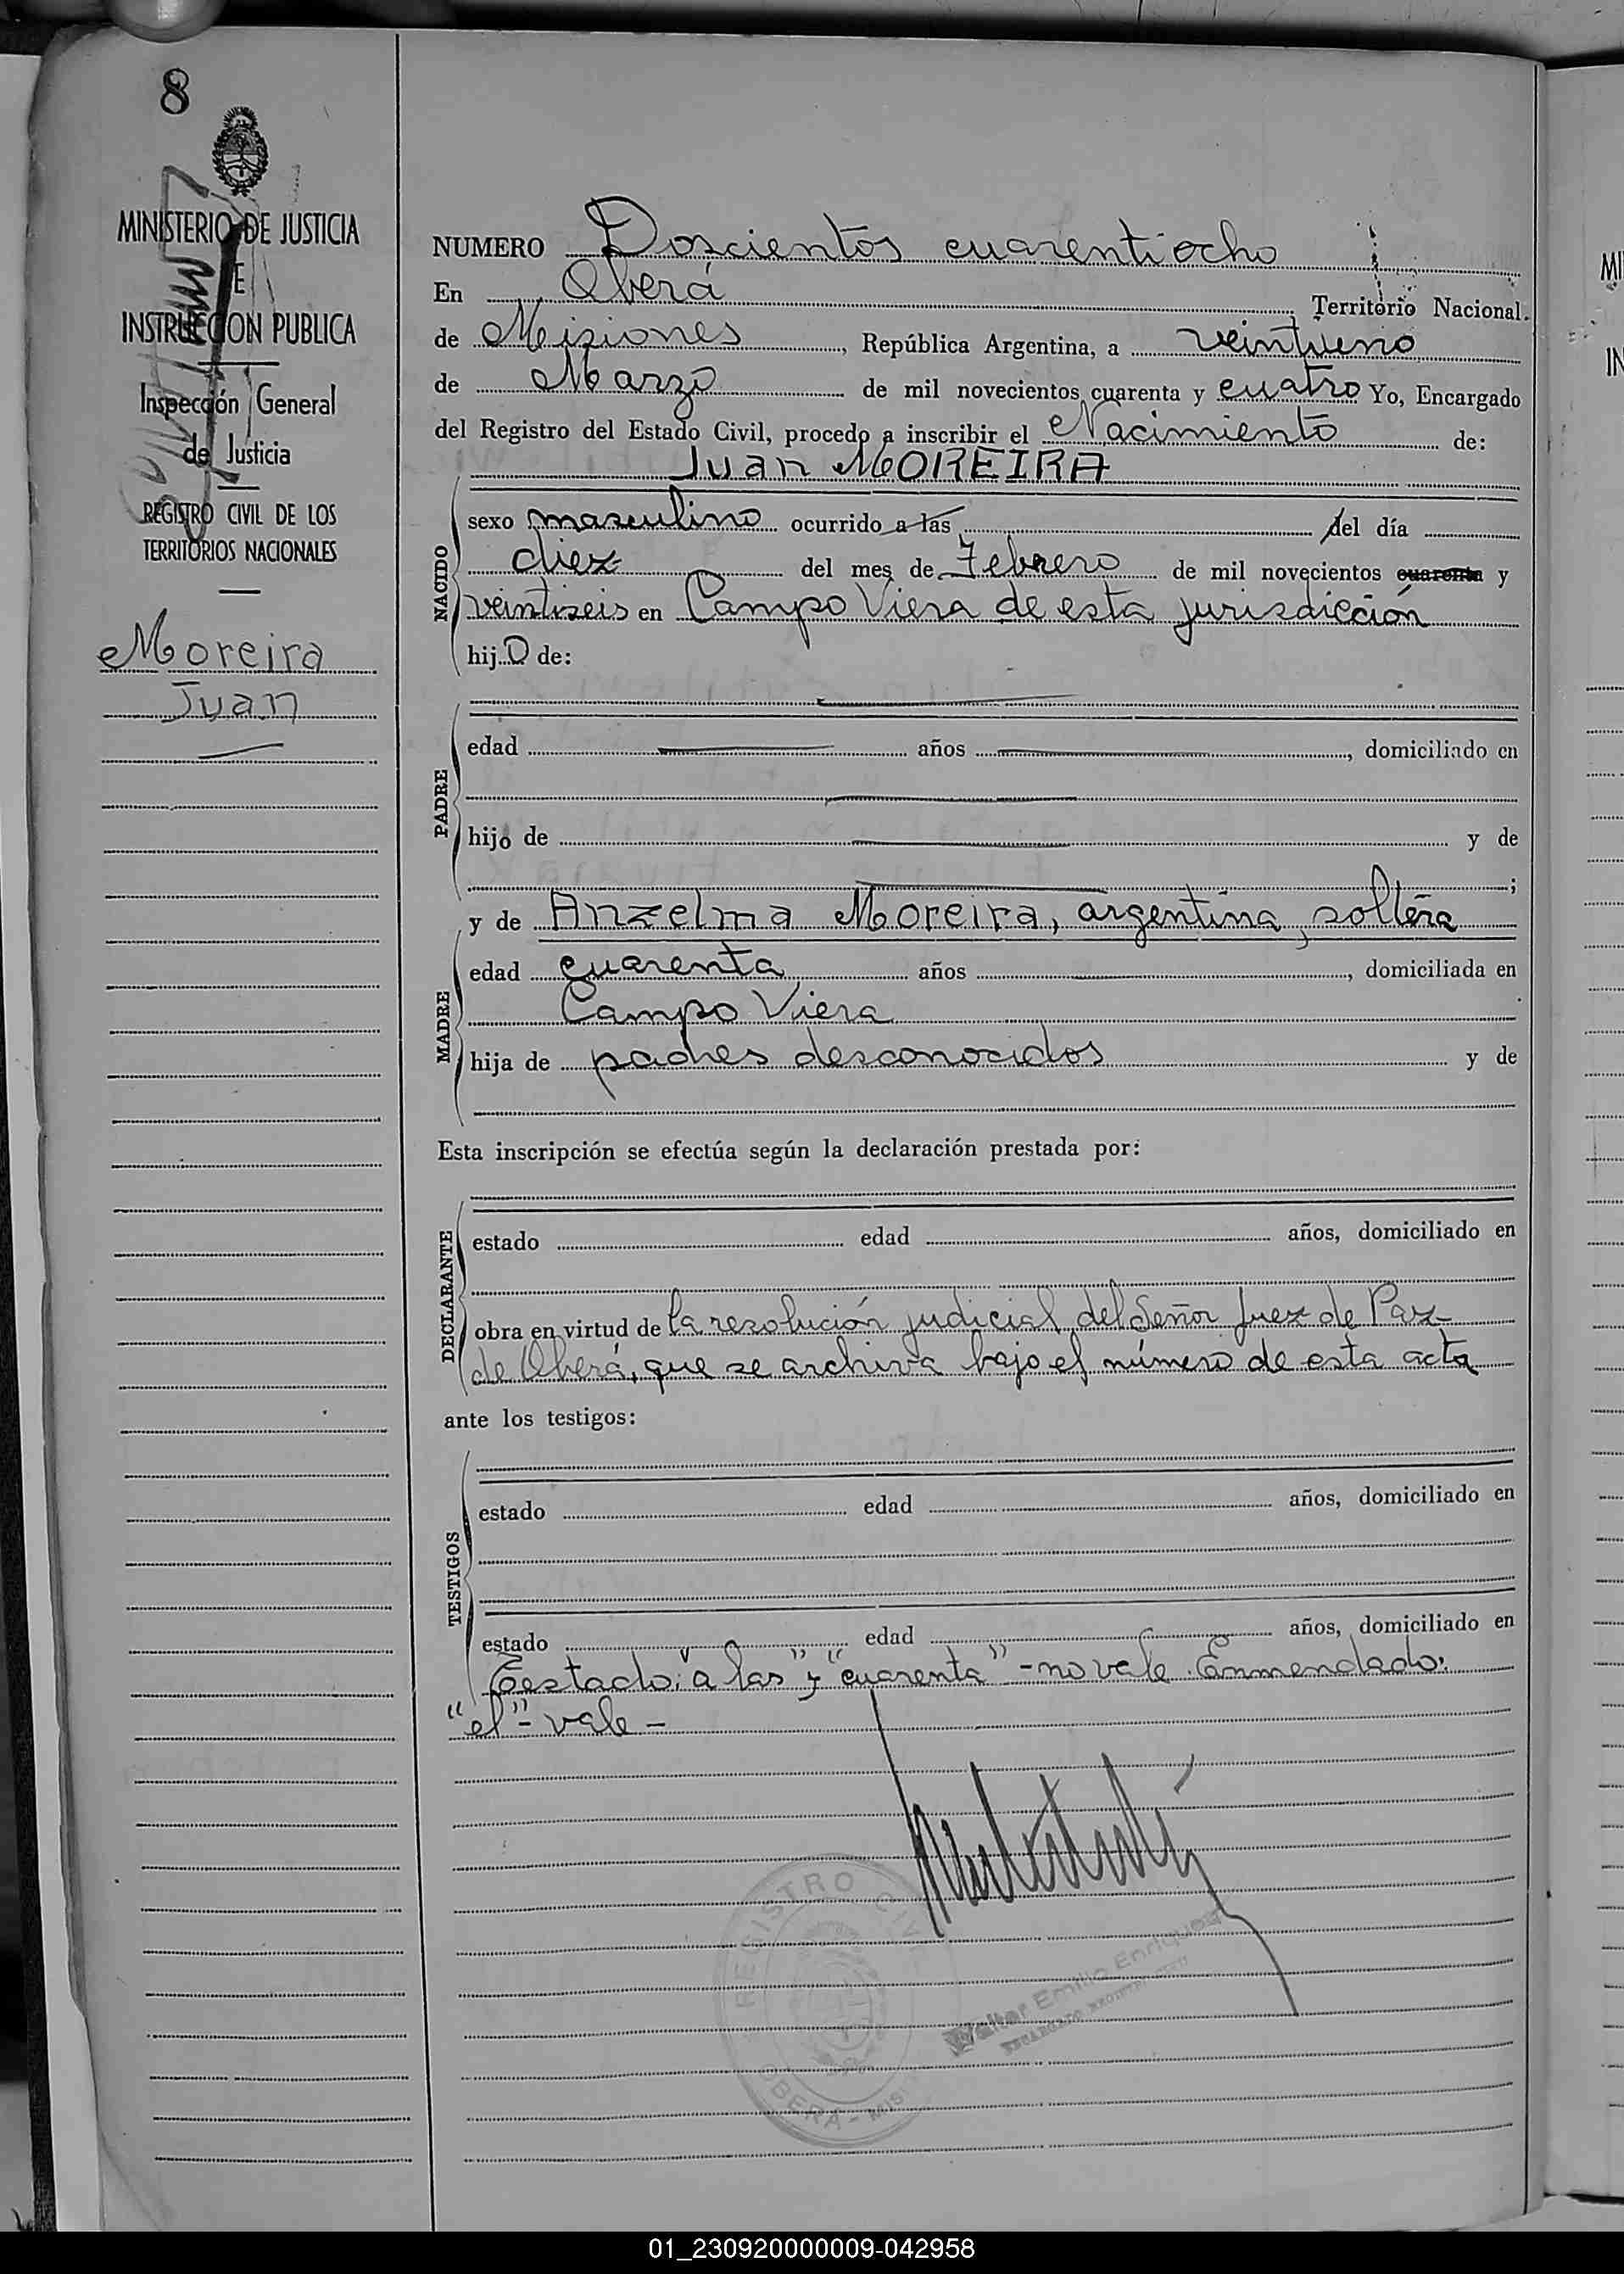 8
MINISTERIO DE JUSTICIA
E
INSTRUCCION PUBLICA
Inspección General
de Justicia
REGISTRO CIVIL DE LOS
TERRITORIOS NACIONALES
Moreira
Juan
NUMERO Doscientos cuarentiocho
En Oberá Territorio Nacional.
de Misiones, República Argentina, a veintiuno
de Marzo de mil novecientos cuarenta y cuatro Yo, Encargado
del Registro del Estado Civil, procedo a inscribir el Nacimiento de:
Juan MOREIRA
NACIDO
sexo masculino ocurrido a las del día
diez del mes de Febrero de mil novecientos cuarenta y
veintiseis en Campo Viera de esta jurisdicción
hijo de:
PADRE
edad años , domiciliado en
hijo de y de
;
y de Anselma Moreira, argentina, soltera
MADRE
edad cuarenta años , domiciliada en
Campo Viera
hija de padres desconocidos y de
Esta inscripción se efectúa según la declaración prestada por:
DECLARANTE
estado edad años, domiciliado en
obra en virtud de la resolución judicial del Señor Juez de Paz
de Oberá, que se archiva bajo el número de esta acta
ante los testigos:
TESTIGOS
estado edad años, domiciliado en
estado edad años, domiciliado en
Testado: "a las" y "cuarenta" - no vale. Enmendado:
"el" - vale -
REGISTRO CIVIL
OBERÁ - MIS
Walter Emilio Enriquez
01_230920000009-042958